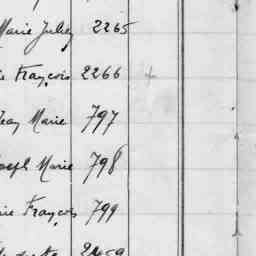 Marie Juley 2265
ie François 2266
Jean Marie 797
oseph Marie 798
rie François 799